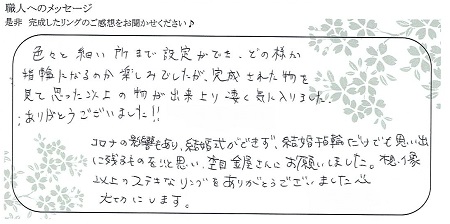 職人へのメッセージ
是非 完成したリングのご感想をお聞かせください♪
色々と細い所まで設定ができ、どの様な
指輪になるのか楽しみでしたが、完成された物を
見て思った以上の物が出来上り凄く気に入りました。
ありがとうございました!!
コロナの影響もあり、結婚式ができず、結婚指輪だけでも思い出
に残るものをと思い、杢目金屋さんにお願いしました。想像
以上のステキなリングをありがとうございました
大切にします。